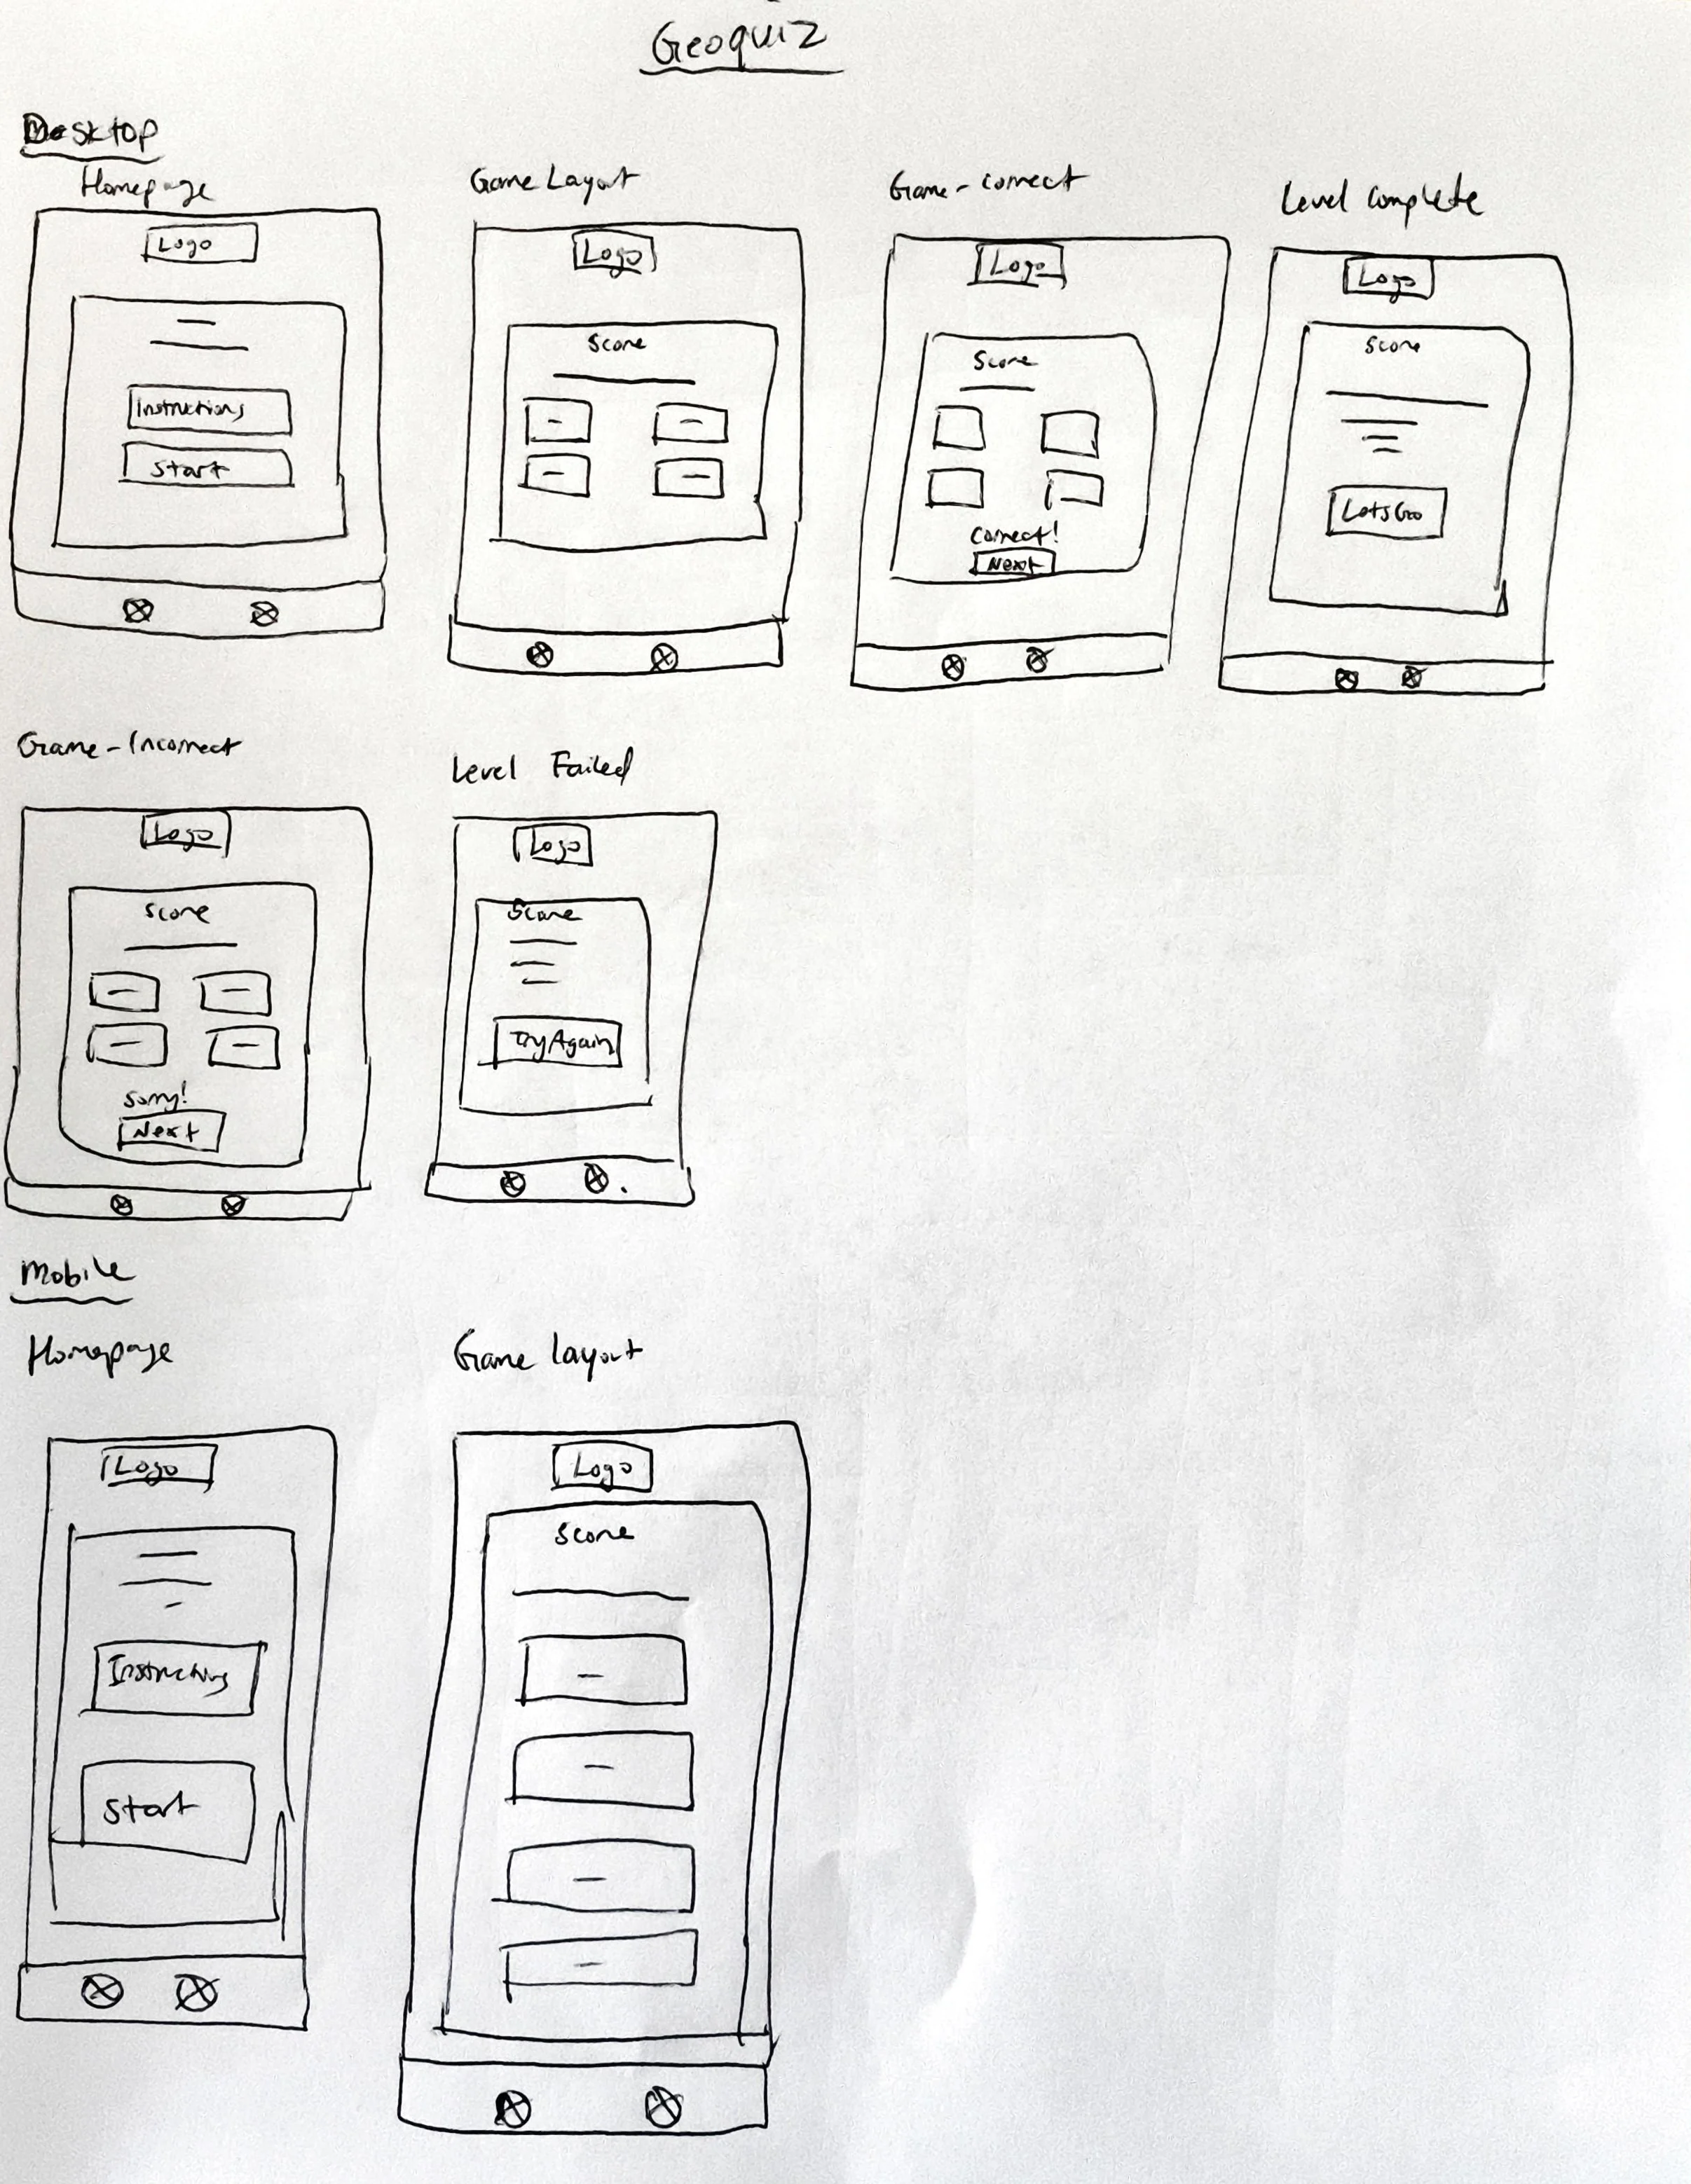 Geoquiz
Desktop
Homepage
Logo
Instructions
Start
Game Layout
Logo
Score
Game - Correct
Logo
Score
Correct!
Next
Level Complete
Logo
Score
Lets Go
Game - Incorrect
Logo
Score
Sorry!
Next
Level Failed
Logo
Score
Try Again
Mobile
Homepage
Logo
Instructions
Start
Game layout
Logo
Score